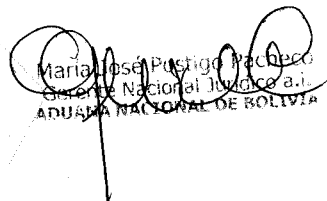 Maria José Postigo Pacheco
Gerente Nacional Jurídico a.i.
ADUANA NACIONAL DE BOLIVIA